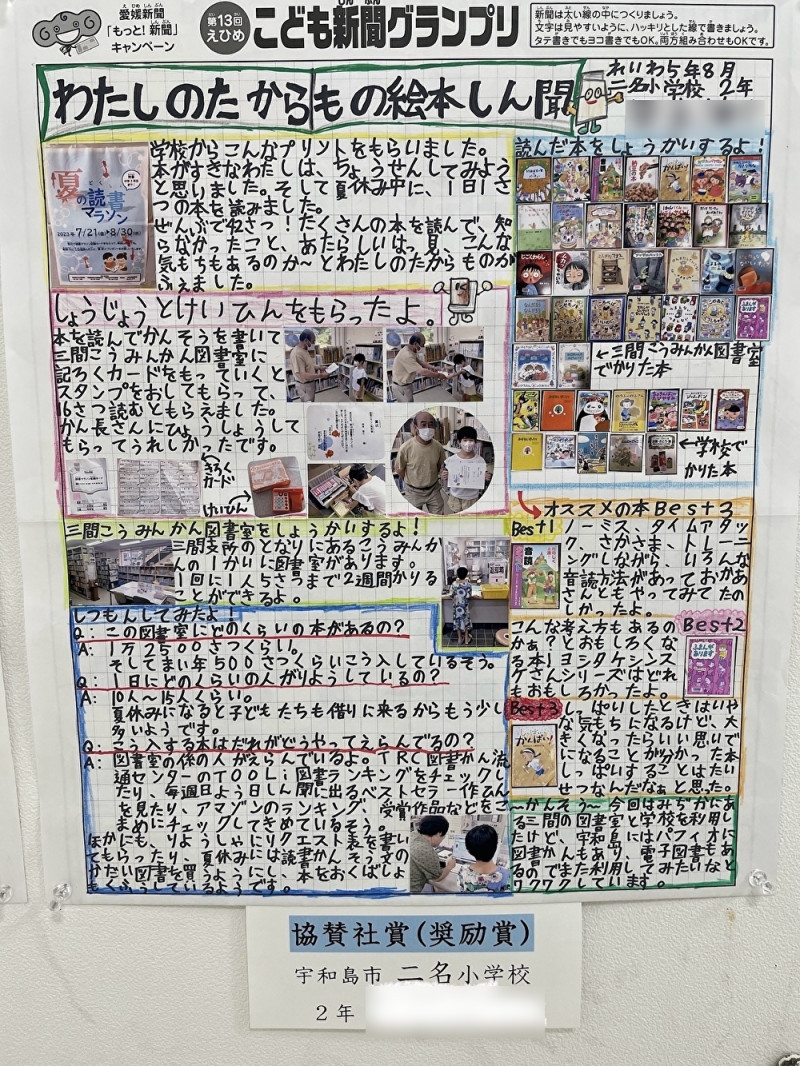 愛媛新聞
「もっと！新聞」
キャンペーン
第13回
えひめ
こども新聞グランプリ
新聞は太い線の中につくりましょう。
文字は見やすいように、ハッキリとした線で書きましょう。
タテ書きでもヨコ書きでもOK。両方組み合わせもOKです。
わたしのたからもの絵本しん聞
れいわ5年8月
二名小学校 2年
夏の読書
マラソン
2023年 7/21(金)→8/30(水)
学校からこんなプリントをもらいました。
本がすきなわたしは、ちょうせんしてみよう
と思いました。そして夏休み中に、1日1さ
つの本を読みました。
ぜんぶで42さつ！たくさんの本を読んで、知
らなかったこと、あたらしいはっ見、こんな
気もちもあるのか～とわたしのたからものが
ふえました。
しょうじょうとけいひんをもらったよ。
本を読んでかんそうを書いて
三間こうみんかん図書室に
記ろくカードをもっていくと
スタンプをおしてもらって、
16さつ読むともらえました。
かん長さんにひょうしょうして
もらってうれしかったです。
きろく
カード
けいひん→
三間こうみんかん図書室をしょうかいするよ！
三間支所のとなりにあるこうみんか
んの1かいに図書室があります。
1回に1人5さつまで2週間かりる
ことができるよ。
しつもんしてみたよ！
Q: この図書室にどのくらいの本があるの？
A: 1万2500さつくらい。
そしてまい年500さつくらいこう入しているそう。
Q: 1日にどのくらいの人がりようしているの？
A: 10人～15人くらい。
夏休みになると子どもたちも借りに来るからもう少し
多いようです。
Q: こう入する本はだれがどうやってえらんでるの？
A: 図書室の係の人がえらんでいるよ。TRC図書かん流
通センターのTOOLi図書ランキングをチェックし
たり、毎週日よう日しん聞に出るベストセラー作ひん
を見たり、アマゾンのランキング、受賞作品などをこ
まめにチェックしてきめているそう。
ほかにも、りようしゃにリクエスト表を書い
てもらったり、夏休みには読書かんそう文の
かだい図書を買うようにし、本をおくばしょ
もくふうしているようです。
読んだ本をしょうかいするよ！
←三間こうみんかん図書室
でかりた本
←学校で
かりた本
オススメの本Best3
Best1
ノーミス、タイムアタッ
ク、さかさま、トレーニ
ングしながら、いろんな
音読方法があっておかあ
さんともやってみてたの
しかったよ。
音読
Best2
こんな考え方もあるの
かぁ？とおもしろくな
る本！ヨシタケシンス
ケさんシリーズはどれ
もおもしろかったよ。
ふまんが
あります
Best3
しっぱいしたときはいや
な気もちになるけど、大
きくなったらいい思いで
になることが分かった本
しっぱいすることはたい
せつなんだなぁと思った。
かんぱい！
～かんそう～今回はみぢかにあ
る三間の図書室と学校を利用し
たけど、宇和島にはパフィオに
図書かんもあり、電子図書もあ
るのでまた利用してみたいなと
ワクワクしています。
協賛社賞(奨励賞)
宇和島市 二名小学校
2年